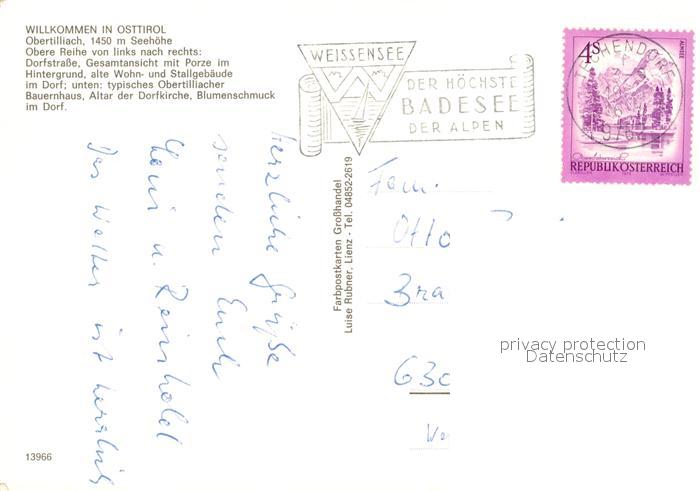 WILLKOMMEN IN OSTTIROL
Obertilliach, 1450 m Seehöhe
Obere Reihe von links nach rechts:
Dorfstraße, Gesamtansicht mit Porze im
Hintergrund, alte Wohn- und Stallgebäude
im Dorf; unten: typisches Obertilliacher
Bauernhaus, Altar der Dorfkirche, Blumenschmuck
im Dorf.
WEISSENSEE
DER HÖCHSTE
BADESEE
DER ALPEN
TECHENDORF
4S
ALMSEE
REPUBLIK ÖSTERREICH
Herzliche Grüße
senden Euch
u. Reinhold
Das Wetter ist herrlich
Farbpostkarten Großhandel
Luise Rubner, Lienz - Tel. 04852-2619
Fam.
Otto
Bra
630
privacy protection
Datenschutz
13966